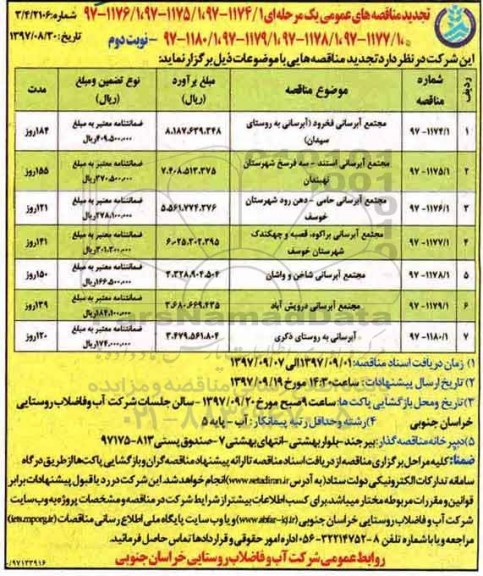 تجدید مناقصه های عمومی یک مرحله ای ۹۷-۱۱۷۴/۱،۹۷-۱۱۷۵/۱،۹۷-۱۱۷۶/۱
۹۷-۱۱۷۷/۱،۹۷-۱۱۷۸/۱،۹۷-۱۱۷۹/۱،۹۷-۱۱۸۰/۱ - نوبت دوم
شماره: ۳/۴/۲۱۰۶
تاریخ: ۱۳۹۷/۰۸/۳۰
این شرکت در نظر دارد تجدید مناقصه هایی با موضوعات ذیل برگزار نماید:
ردیف شماره مناقصه موضوع مناقصه مبلغ برآورد (ریال) نوع تضمین و مبلغ (ریال) مدت
۱ ۹۷-۱۱۷۴/۱ مجتمع آبرسانی فخرود (آبرسانی به روستای سیدان) ۸،۱۸۷،۶۳۹،۳۴۸ ضمانتنامه معتبر به مبلغ ۴۰۹،۵۰۰،۰۰۰ریال ۱۸۴روز
۲ ۹۷-۱۱۷۵/۱ مجتمع آبرسانی استند - سه فرسخ شهرستان نهبندان ۷،۴۰۸،۵۱۳،۳۷۵ ضمانتنامه معتبر به مبلغ ۳۷۰،۵۰۰،۰۰۰ریال ۱۵۵روز
۳ ۹۷-۱۱۷۶/۱ مجتمع آبرسانی حامی - دهن رود شهرستان خوسف ۵،۵۶۱،۷۷۴،۳۷۶ ضمانتنامه معتبر به مبلغ ۲۷۸،۱۰۰،۰۰۰ریال ۱۲۱روز
۴ ۹۷-۱۱۷۷/۱ مجتمع آبرسانی براکوه، قصبه و چهکندک شهرستان خوسف ۶،۰۲۵،۳۰۲،۳۹۵ ضمانتنامه معتبر به مبلغ ۳۰۱،۳۰۰،۰۰۰ریال ۱۴۱روز
۵ ۹۷-۱۱۷۸/۱ مجتمع آبرسانی شاخن و واشان ۳،۳۲۸،۹۰۲،۵۰۴ ضمانتنامه معتبر به مبلغ ۱۶۶،۵۰۰،۰۰۰ریال ۱۵۰روز
۶ ۹۷-۱۱۷۹/۱ مجتمع آبرسانی درویش آباد ۳،۶۸۰،۶۶۹،۴۳۵ ضمانتنامه معتبر به مبلغ ۱۸۴،۱۰۰،۰۰۰ریال ۱۳۹روز
۷ ۹۷-۱۱۸۰/۱ آبرسانی به روستای ذکری ۳،۴۷۹،۵۶۱،۸۰۴ ضمانتنامه معتبر به مبلغ ۱۷۴،۰۰۰،۰۰۰ریال ۱۲۰روز
۱) زمان دریافت اسناد مناقصه: ۱۳۹۷/۰۹/۰۱الی ۱۳۹۷/۰۹/۰۷
۲) تاریخ ارسال پیشنهادات: ساعت ۱۴:۳۰ مورخ ۱۳۹۷/۰۹/۱۹
۳) تاریخ ومحل بازگشایی پاکت ها: ساعت ۹ صبح مورخ ۱۳۹۷/۰۹/۲۰ - سالن جلسات شرکت آب و فاضلاب روستایی
خراسان جنوبی ۴) رشته وحداقل رتبه پیمانکار: آب - پایه ۵
۵) دبیرخانه مناقصه گذار: بیرجند-بلوار بهشتی -انتهای بهشتی ۷ - صندوق پستی ۸۱۳-۹۷۱۷۵
ضمناً: کلیه مراحل برگزاری مناقصه از دریافت اسناد مناقصه تا ارائه پیشنهاد مناقصه گران و بازگشایی پاکت ها از طریق درگاه
سامانه تدارکات الکترونیکی دولت ستاد (به آدرس www.setadiran.ir) انجام خواهد شد. این شرکت در رد یا قبول پیشنهادات برابر
قوانین و مقررات مربوطه مختار میباشد برای کسب اطلاعات بیشتر از شرایط شرکت در مناقصه و مشخصات پروژه به وب سایت
شرکت آب و فاضلاب روستایی خراسان جنوبی (www.abfar-kj.ir) و یا وب سایت پایگاه ملی اطلاع رسانی مناقصات (ies.mporg.ir)
مراجعه و یا با شماره تلفن ۸-۰۵۶-۳۲۲۱۴۷۵۲ اداره امور حقوقی و قراردادها تماس حاصل فرمائید.
روابط عمومی شرکت آب و فاضلاب روستایی خراسان جنوبی